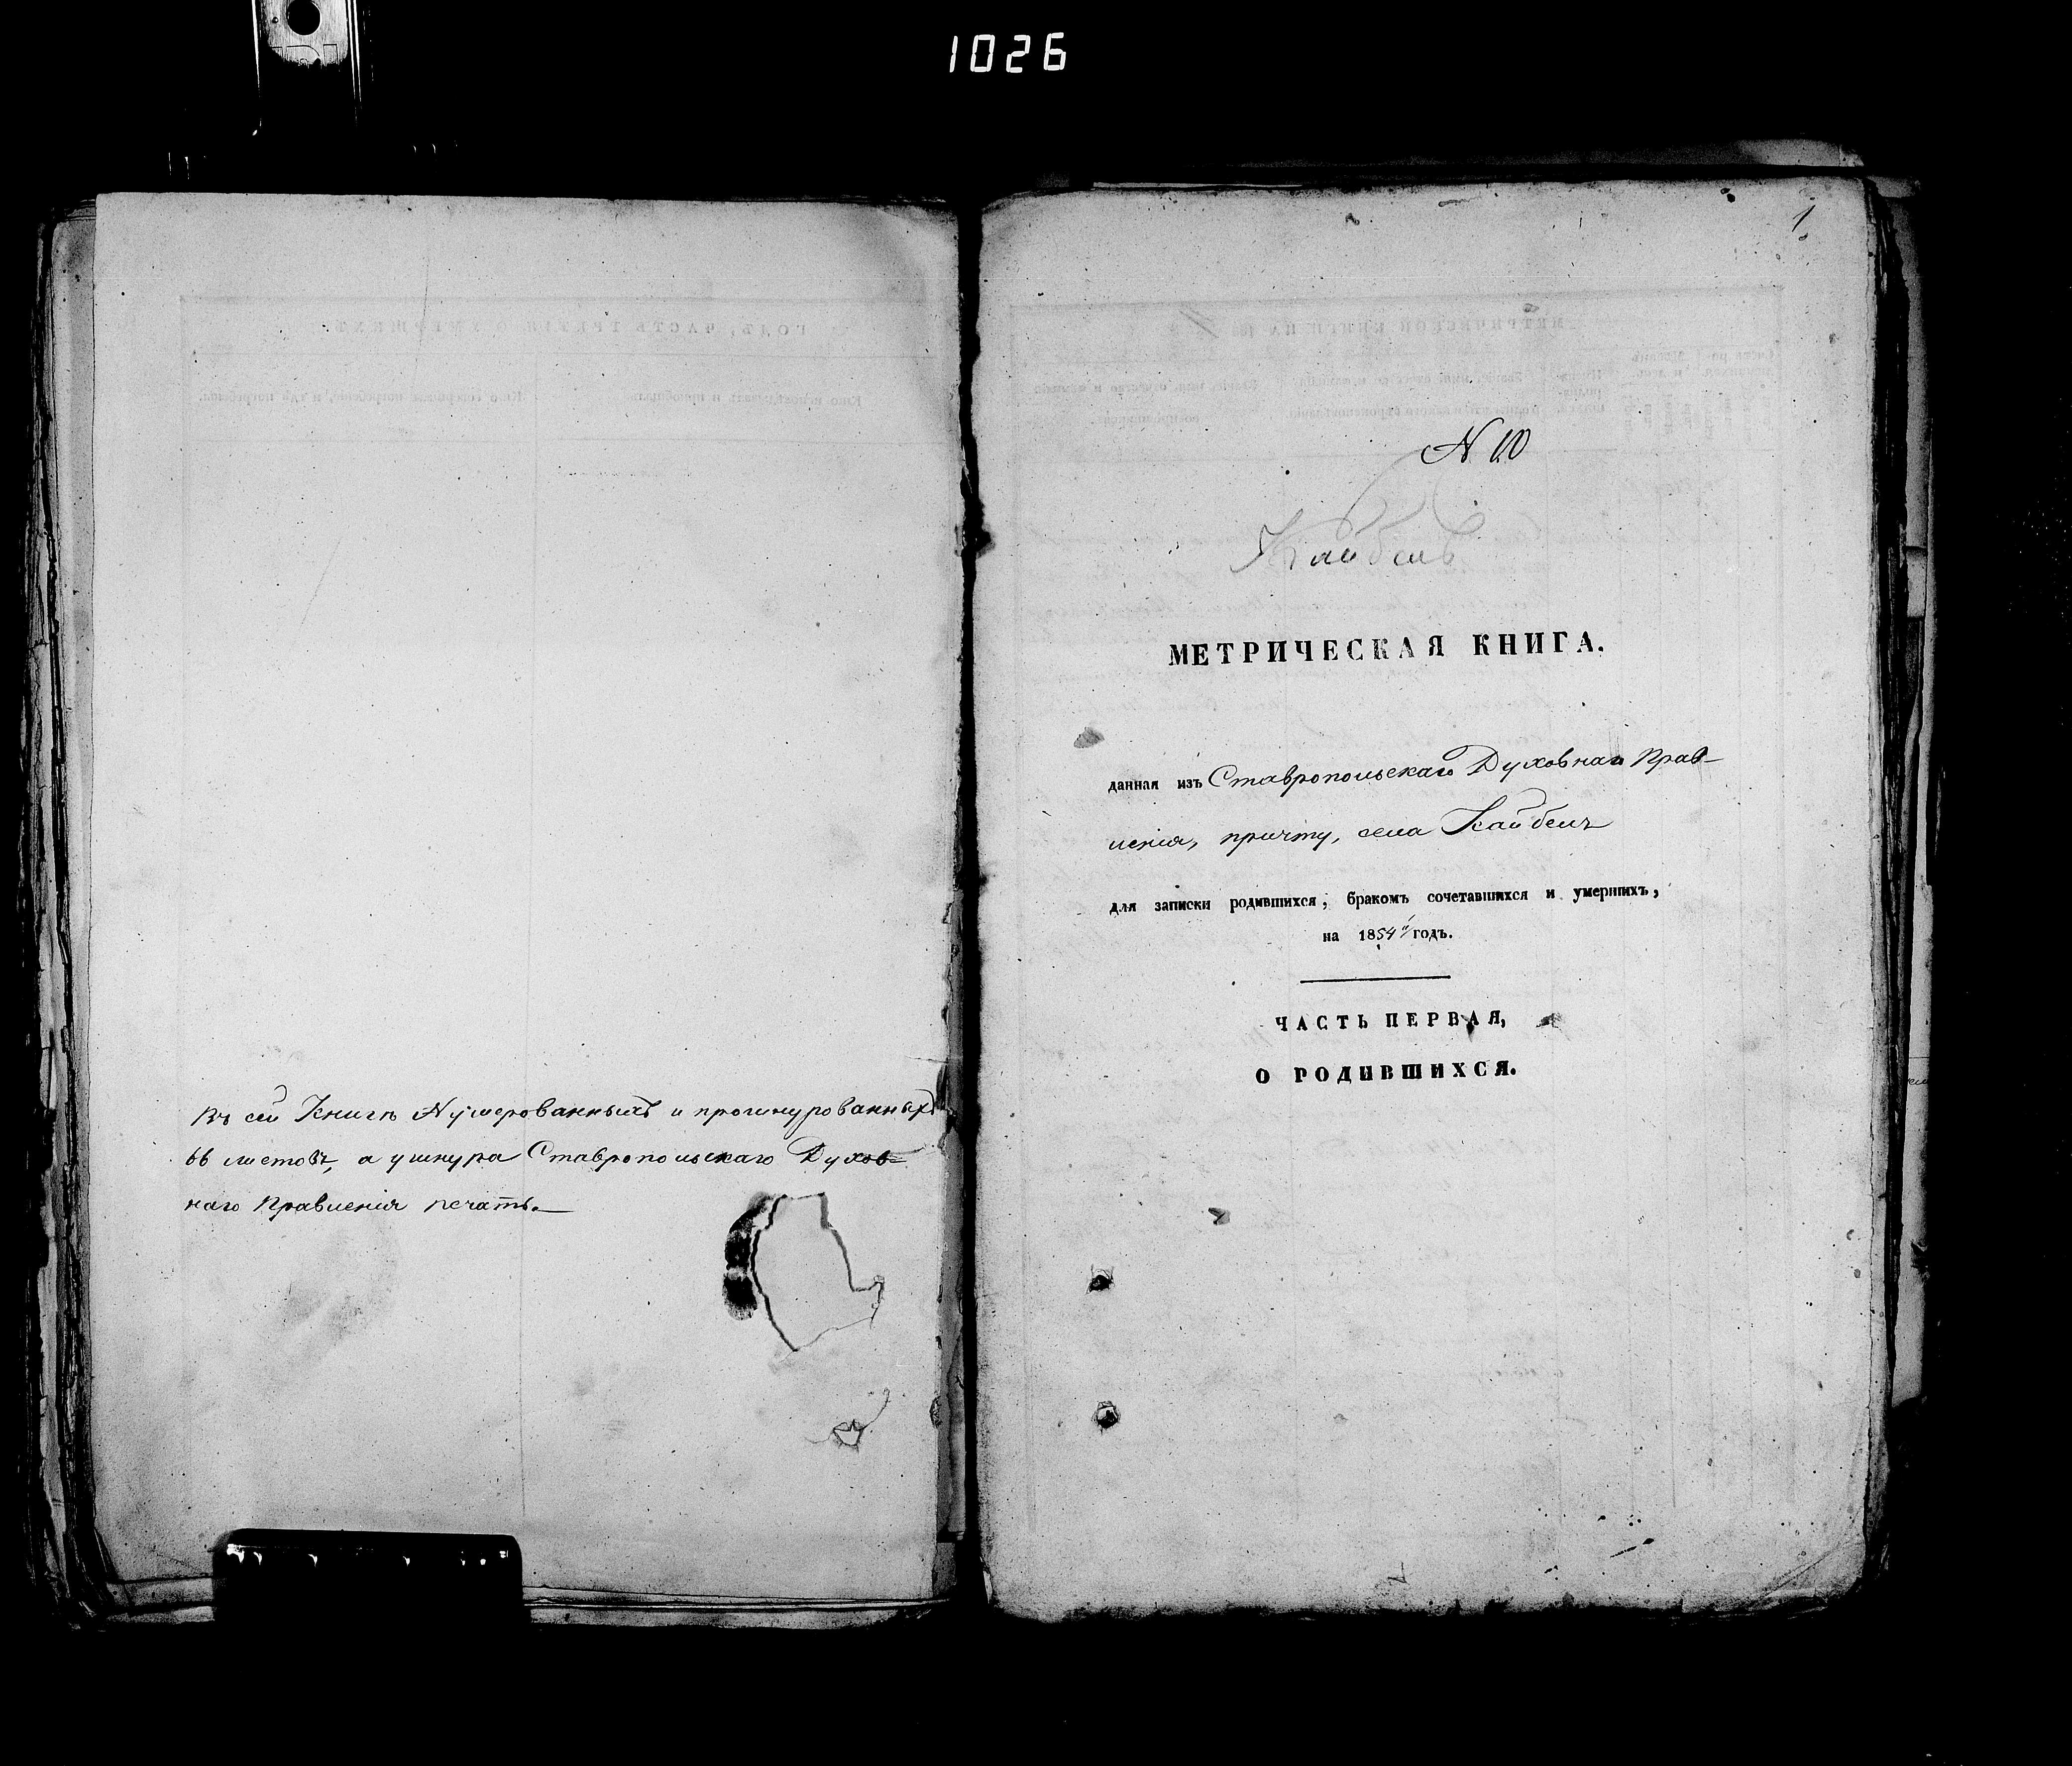 1026
Въ сей Книгѣ Нумерованныхъ и прошнурованныхъ
66 листовъ, а у шнура Ставропольскаго Духов=
наго Правленія печать.
1
N 10
Кайбелъ
МЕТРИЧЕСКАЯ КНИГА.
данная изъ Ставропольскаго Духовнаго Прав-
ленія, причту, села Кайбелъ
для записки родившихся, бракомъ сочетавшихся и умершихъ,
на 1854й годъ.
ЧАСТЬ ПЕРВАЯ,
О РОДИВШИХСЯ.